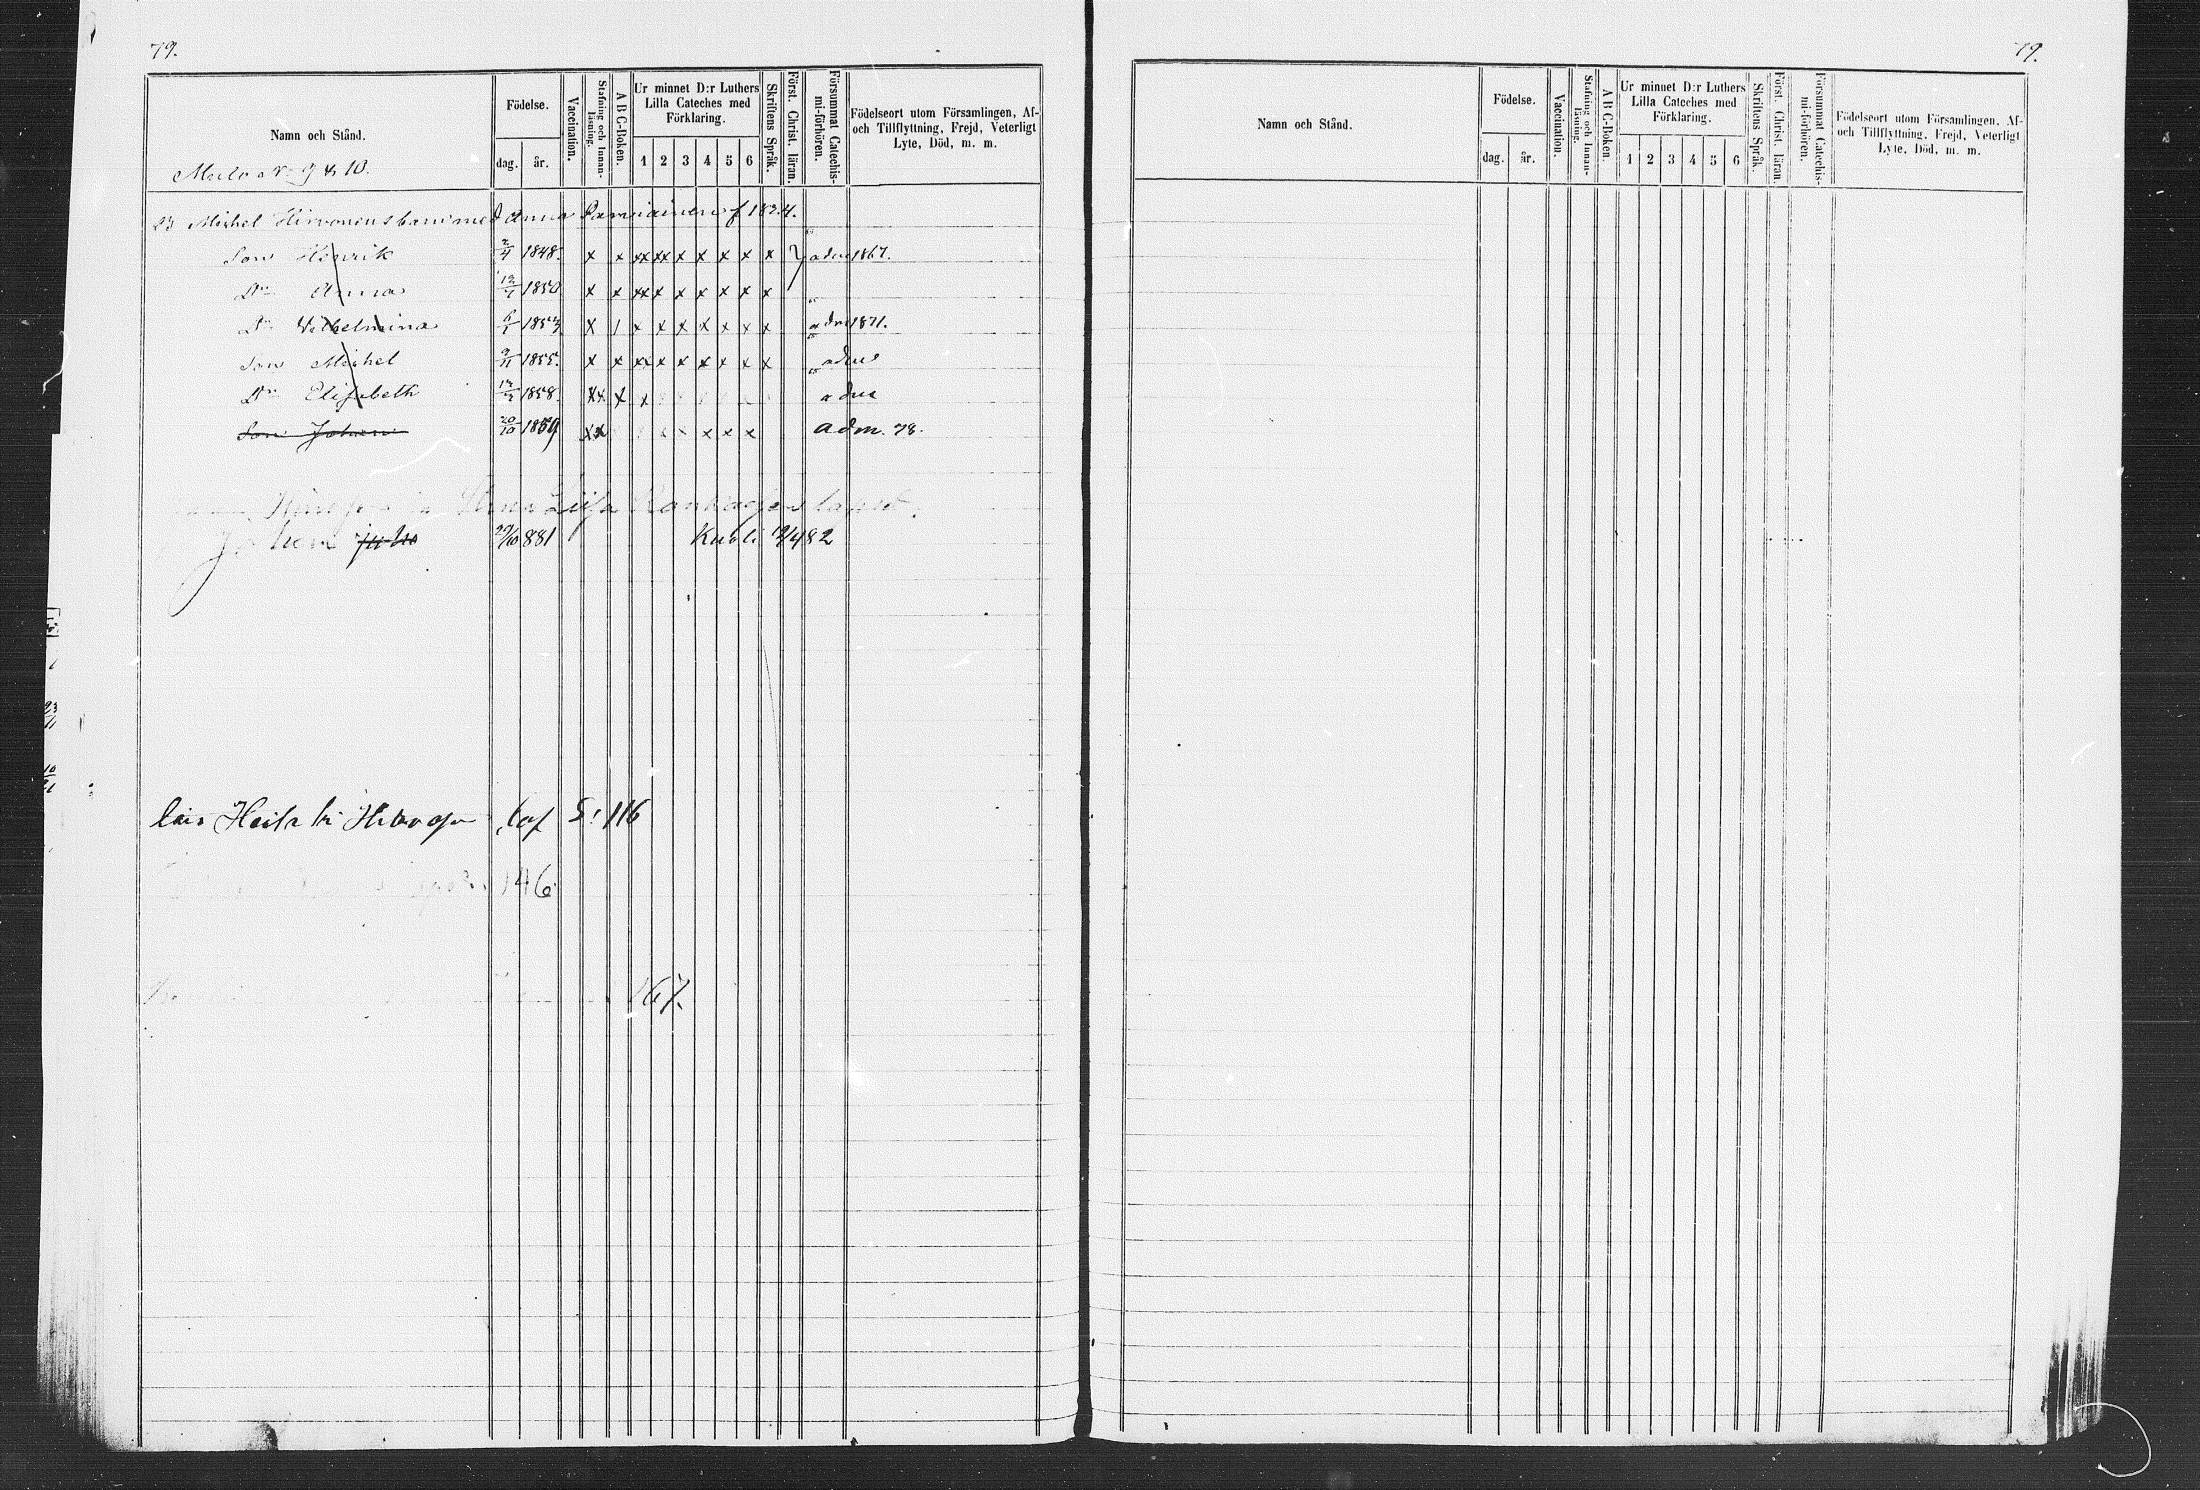 79.
Namn och Stånd.
Födelse.
dag. år.
Vaccination.
Stafning och Innan-läsning.
A B C-Boken.
Ur minnet D:r Luthers Lilla Cateches med Förklaring.
1 2 3 4 5 6
Skriftens Språk.
Först. Christ. läran.
Försummat Catechis-mi-förhören.
Födelseort utom Församlingen, Af- och Tillflyttning, Frejd, Veterligt Lyte, Död, m. m.
No 9 & 10.
Michel Hirvonens barn med Anna f 1824.
Son Henrik 2/4 1848. x x xx xx x x x x x adm 1867.
Dr Anna 1850 x x xx x x x x x x
Dr Wilhelmina 1853 x / x x x x x x x adm 1871.
Son Michel 9/11 1855. x x xx x x x x x x adm
Dr Elisabeth 1858. xx x x adm
Son Johan 20/10 1859 xx x x x adm. 78.
Johan Juho 29/10 881 Kuoli 12/4 82
S: 116
146
167.
79.
Namn och Stånd.
Födelse.
dag. år.
Vaccination.
Stafning och Innan-läsning.
A B C-Boken.
Ur minnet D:r Luthers Lilla Cateches med Förklaring.
1 2 3 4 5 6
Skriftens Språk.
Först. Christ. läran.
Försummat Catechis-mi-förhören.
Födelseort utom Församlingen, Af- och Tillflyttning, Frejd, Veterligt Lyte, Död, m. m.